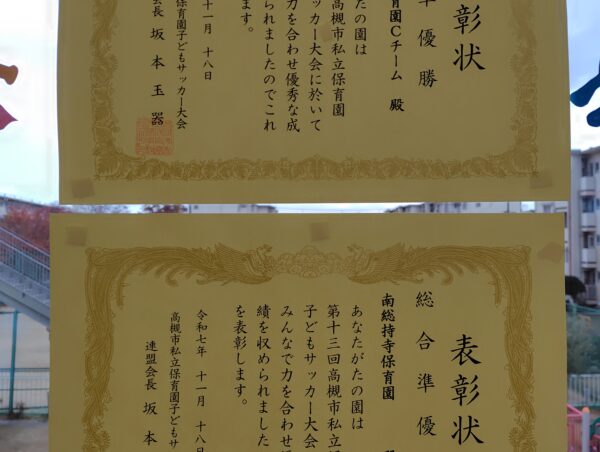 彰状
準優勝
育園Cチーム 殿
たの園は
高槻市私立保育園
ッカー大会に於いて
力を合わせ優秀な成
られましたのでこれ
ます。
十一月 十八日
保育園子どもサッカー大会
会長 坂本玉器
表彰状
総合準優
南総持寺保育園
あなたがたの園は
第十三回高槻市私立
子どもサッカー大会
みんなで力を合わせ
績を収められました
を表彰します。
令和七年 十一月 十八日
高槻市私立保育園子どもサ
連盟会長 坂本